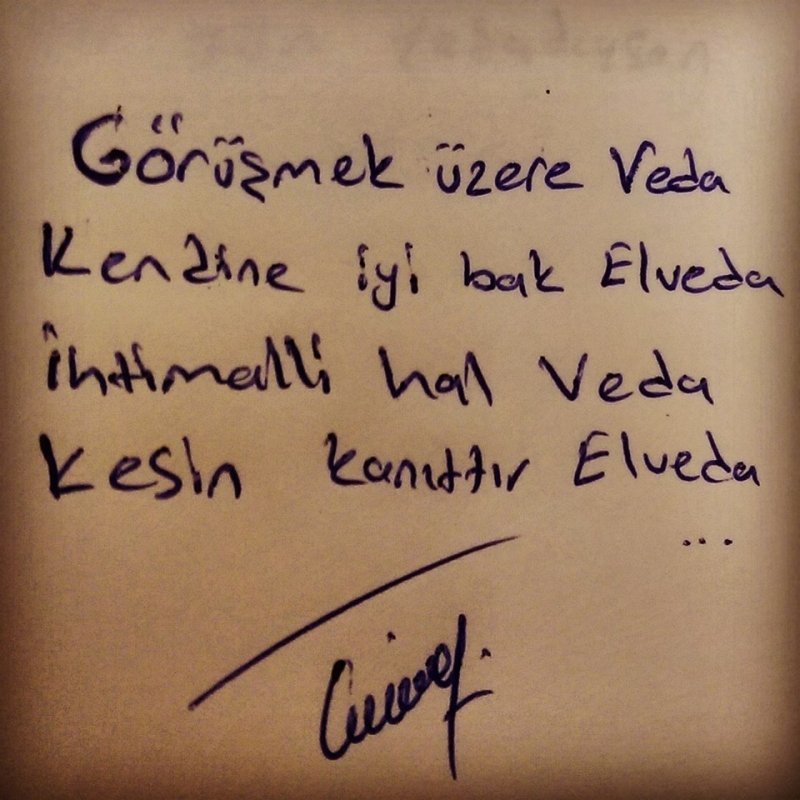 Görüşmek üzere Veda
Kendine iyi bak Elveda
İhtimalli hal Veda
Kesin kanıttır Elveda
...